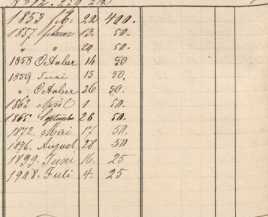 1853 Feb. 22 400.
1857 Januar 13. 50.
" " 20. 50.
1858 October 16 50
1859 Juni 15 50.
" October 26 50.
1863 April 1 50.
1865 September 26 50.
1872. Mai 17. 50.
1896. August 28. 50
1899. Juni 16. 25
1908. Juli 4. 25